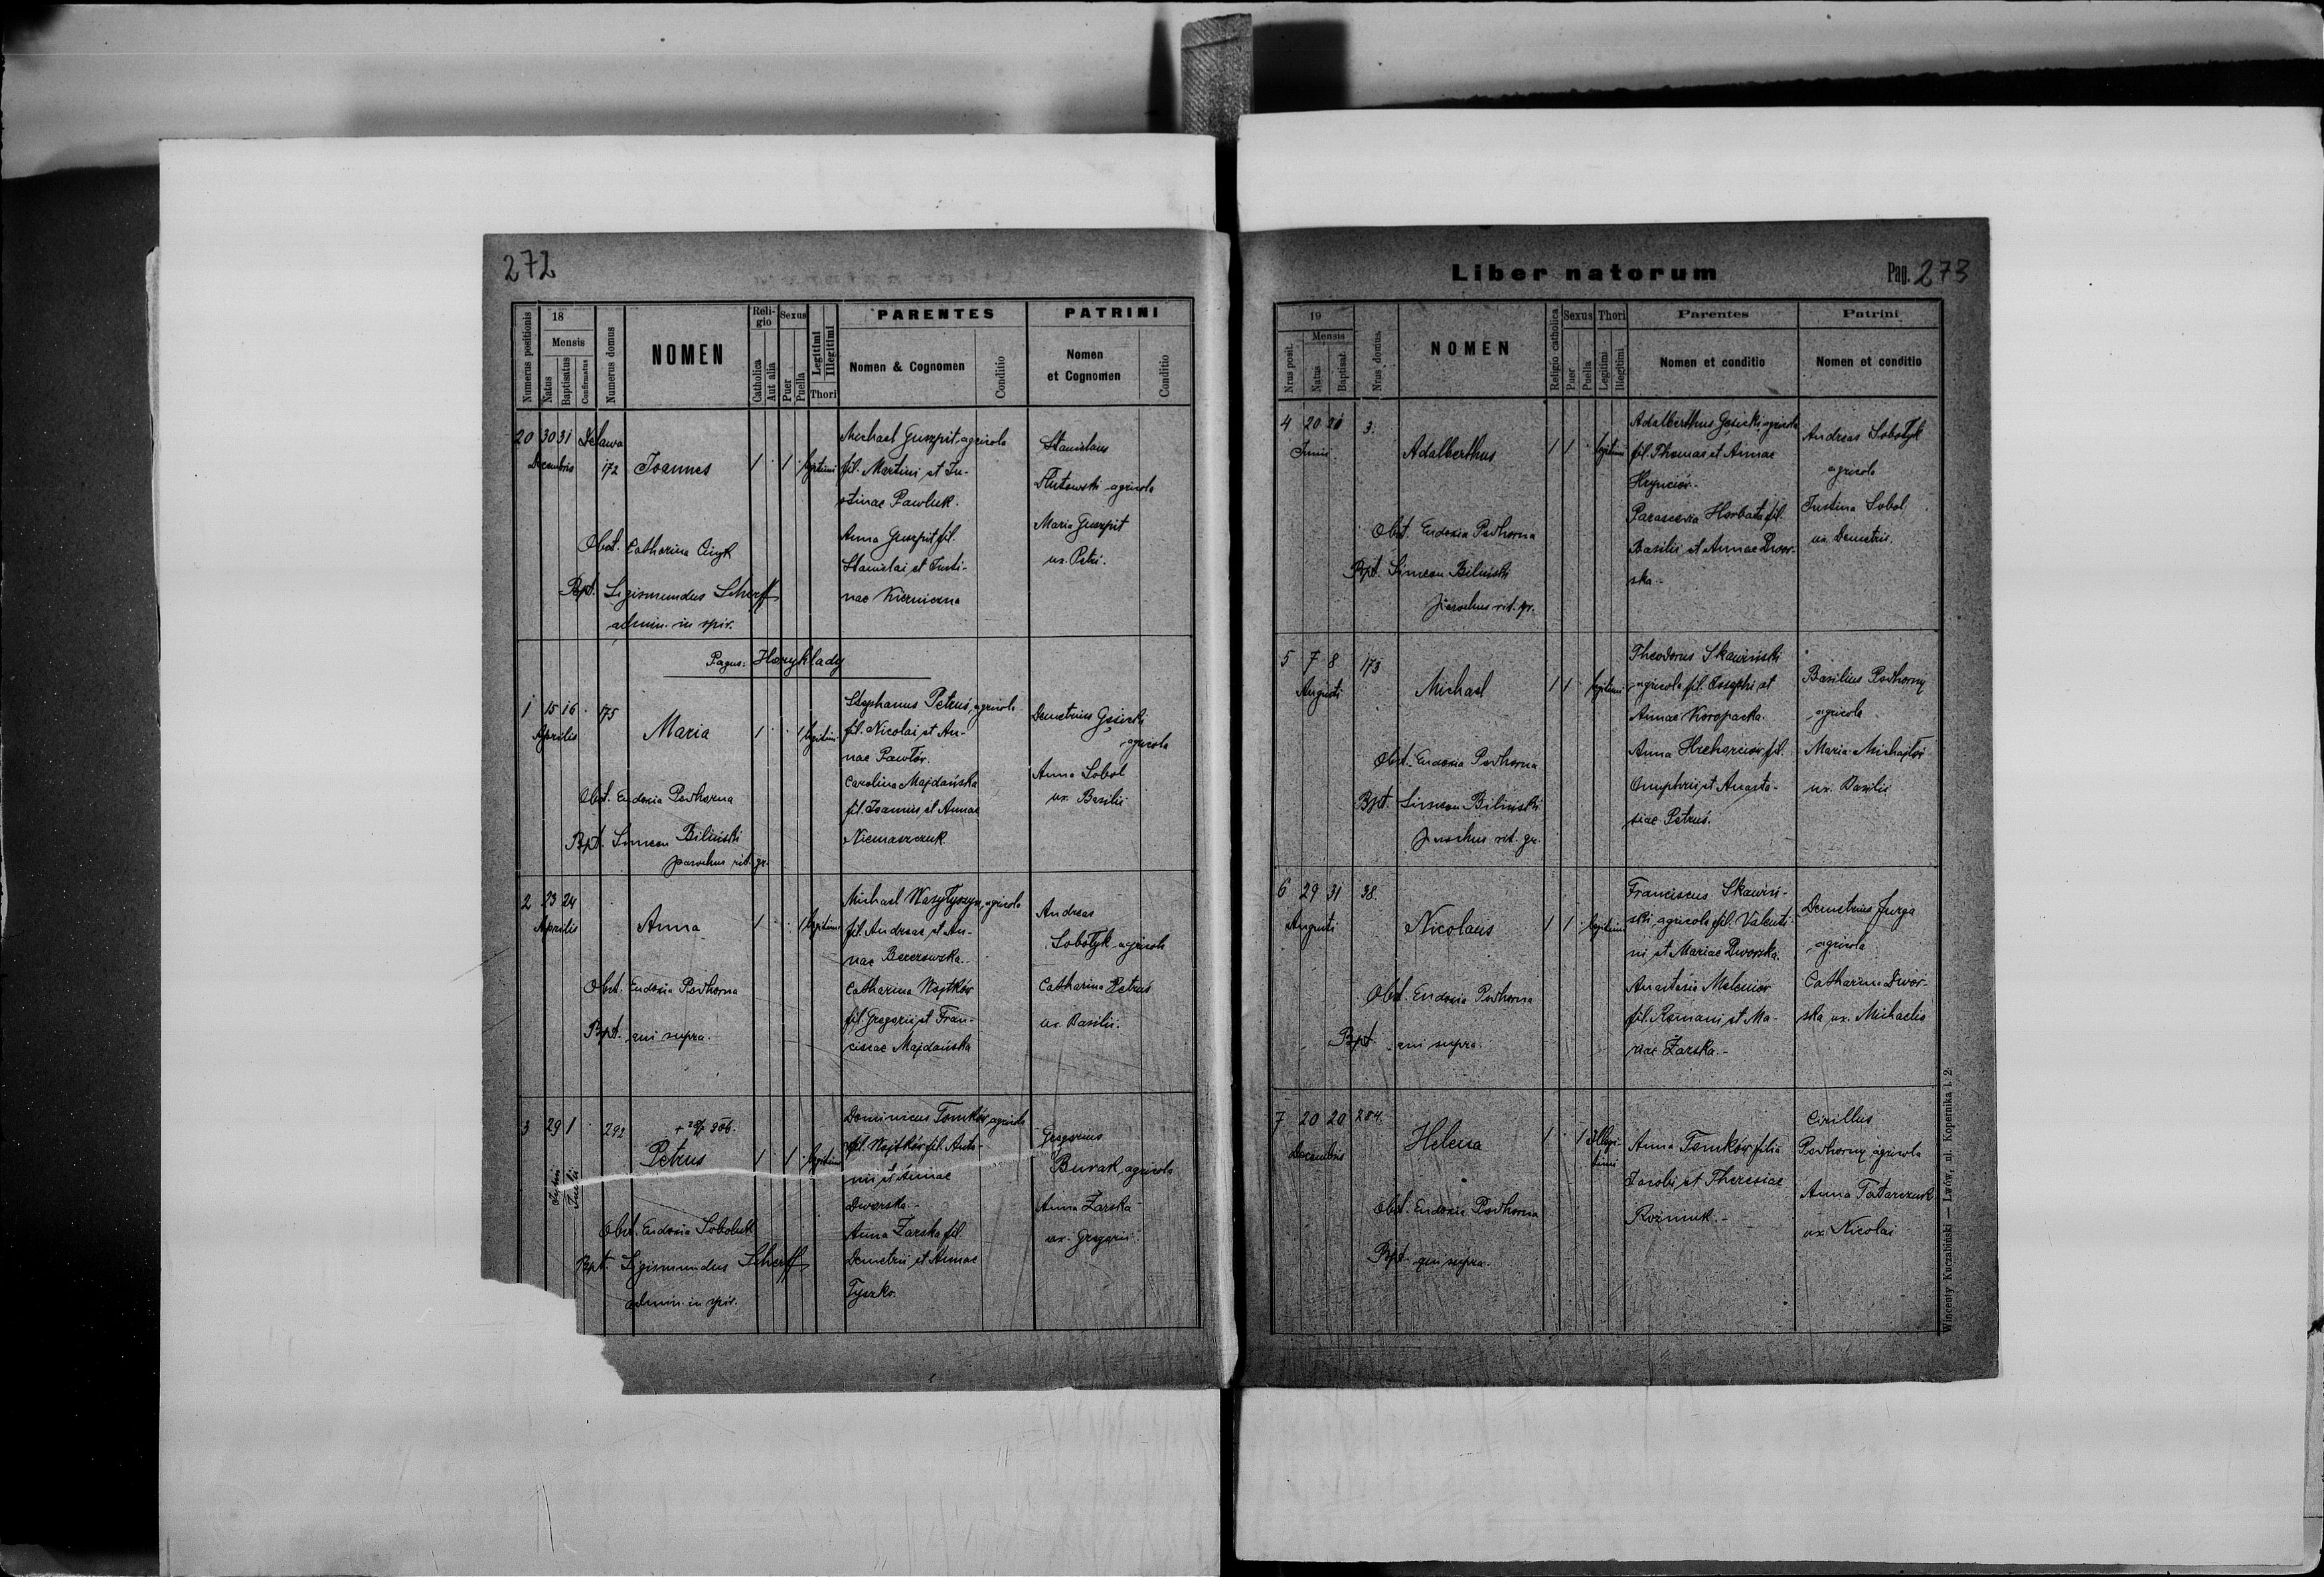 272
Numerus positionis
18
Mensis
Natus
Baptisatus
Confirmatus
Numerus domus
NOMEN
Reli-
gio
Catholica
Aut alia
Sexus
Puer
Puella
Legitimi
Illegitimi
Thori
PARENTES
Nomen & Cognomen
Conditio
PATRINI
Nomen
et Cognomen
Conditio
20 30 31 Delawa
Decembris 172 Joannes 1 1 legitimi
Obst. Catharina
Bpt. Sigismundus Scherff
admin. in spir.
Michael Guszpit, agricola
fil. Martini et Ju-
stinae Pawluk.
Anna Guszpit fil.
Stanislai et Justi-
nae
Stanislaus
agricola
Maria Guszpit
ux. Petri.
Pagus: Horyhlady
1 15 16 175
Aprilis Maria 1 1 legitimi
Obst. Eudoxia Podhorna
Bpt. Simeon Biliński
parochus rit. gr.
Stephanus Petruś, agricola
fil. Nicolai et An-
nae Pawłów.
Carolina Majdańska
fil. Joannis et Annae
Niemaszczuk
Demetrius Gęsicki
agricola
Anna Sobol
ux. Basilii
2 23 24
Aprilis Anna 1 1 legitimi
Obst. Eudoxia Podhorna
Bpt. qui supra.
Michael Wasyłyszyn, agricola
fil. Andreae et An-
nae Berezowska.
Catharina Wojtków
fil. Gregorii et Fran-
ciscae Majdańska
Andreas
Sobotyk agricola
Catharina Petruś
ux. Basilii.
3 29 1 292
Junii Julii
Petrus 1 1 legitimi
Obst. Eudoxia Soboluk
Bpt. Sigismundus Scherff
admin. in spir.
Dominicus Tomków agricola
fil. Wojtków fil. Anto-
nii et Annae
Dworska.-
Anna Żarska fil.
Demetrii et Annae
Tyszko.
Gregorius
Burak, agricola
Anna Żarska
ux. Gregorii.
Liber natorum
Pag. 273
Nrus posit.
19
Mensis
Natus
Baptisat.
Nrus domus.
NOMEN
Religio catholica
Sexus
Puer
Puella
Thori
Legitimi
Illegitimi
Parentes
Nomen et conditio
Patrini
Nomen et conditio
4 20 21 3.
Junii Adalberthus 1 1 legitimi
Obst. Eudoxia Podhorna
Bpt. Simeon Biliński
parochus rit. gr.
Adalberthus Gęsicki agricola
fil. Thomae et Annae
Hryńciów.
Parascevia Horbata fil.
Basilii et Annae Dwor-
ska.-
Andreas Sobotyk
agricola
Justina Sobol
ux. Demetrii.
5 7 8 173
Augusti Michael 1 1 legitimi
Obst. Eudoxia Podhorna
Bpt. Simeon Biliński
parochus rit. gr.
Theodorus Skawiński
agricola fil. Josephi et
Annae Koropacka.
Anna Hrehorciów fil.
Onuphrii et Anasta-
siae Petruś.
Basilius Podhorny
agricola
Maria Michajłów
ux. Basilii
6 29 31 38
Augusti Nicolaus 1 1 legitimi
Obst. Eudoxia Podhorna
Bpt. qui supra.
Franciscus Skawiń-
ski, agricola fil. Valenti-
ni et Mariae Dworska.
Anastasia
fil. Romani et Ma-
riae Żarska.-
Demetrius Jurga
agricola
Catharina Dwor-
ska ux. Michaelis
7 20 20 284.
Decembris Helena 1 1 Illegi-
timi
Obst. Eudoxia Podhorna
Bpt. qui supra.
Anna Tomków filia
Jacobi et Theresiae
Rozmuk.-
Cirillus
Podhorny, agricola
Anna Tatarczuk
ux. Nicolai
Wincenty Kuczabiński — Lwów, ul. Kopernika l. 2.